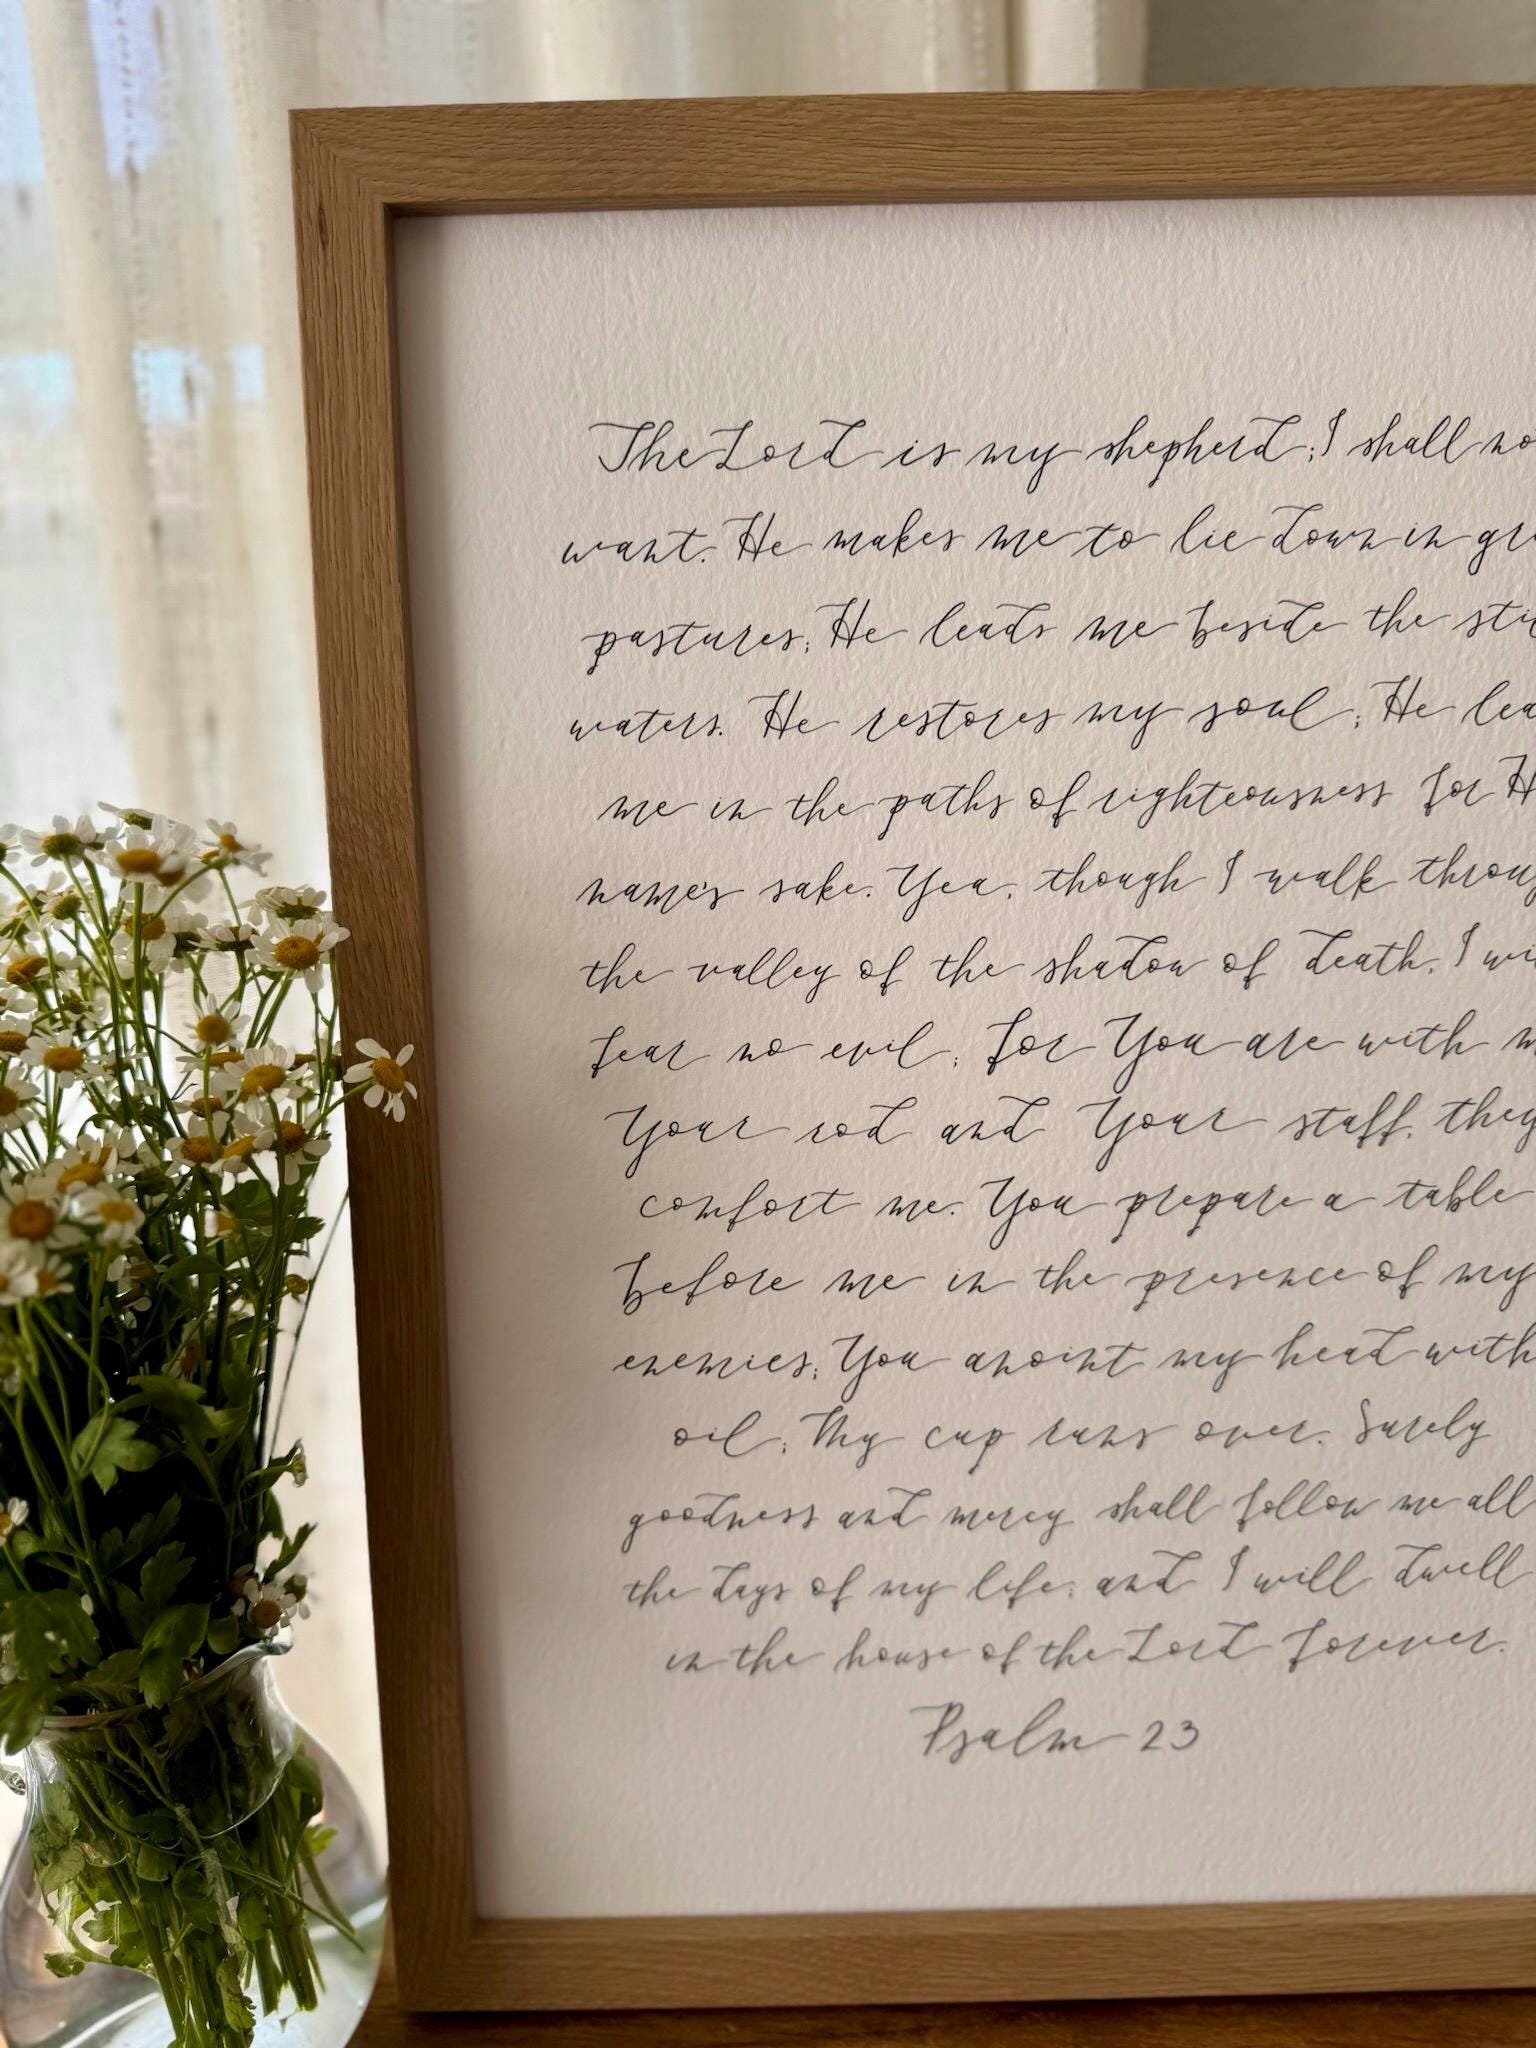 The Lord is my shepherd; I shall no
want. He makes me to lie down in gre
pastures; He leads me beside the sti
waters. He restores my soul; He lea
me in the paths of righteousness for H
name's sake. Yea, though I walk throug
the valley of the shadow of death, I wi
fear no evil; for You are with m
Your rod and Your staff, they
comfort me. You prepare a table
before me in the presence of my
enemies; You anoint my head with
oil; My cup runs over. Surely
goodness and mercy shall follow me all
the days of my life; and I will dwell
in the house of the Lord forever.
Psalm 23